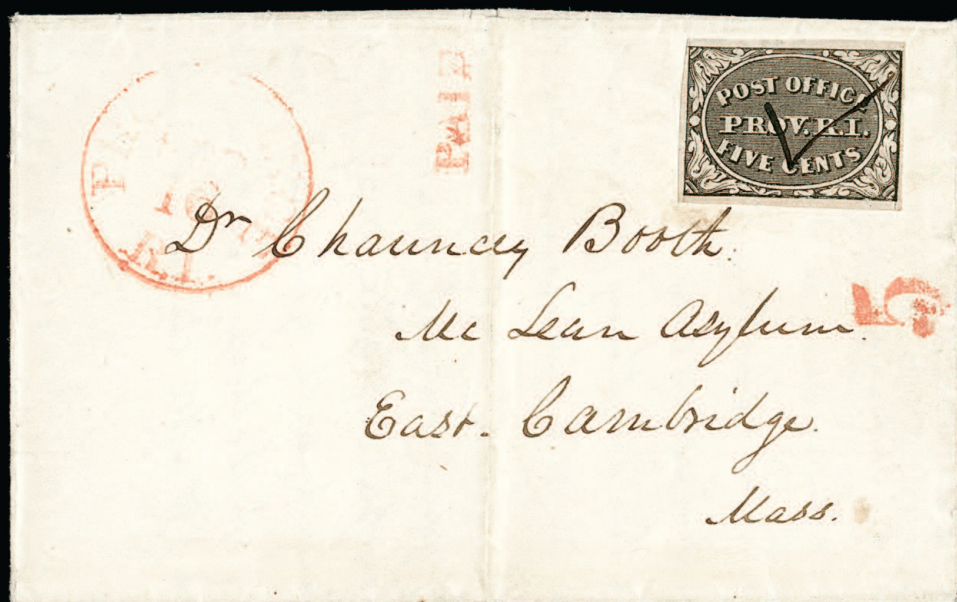 PAID
POST OFFICE
PROV. R.I.
FIVE CENTS
16
R.I.
Dr Chauncey Booth.
Mc Lean Asylum.
5
East. Cambridge.
Mass.